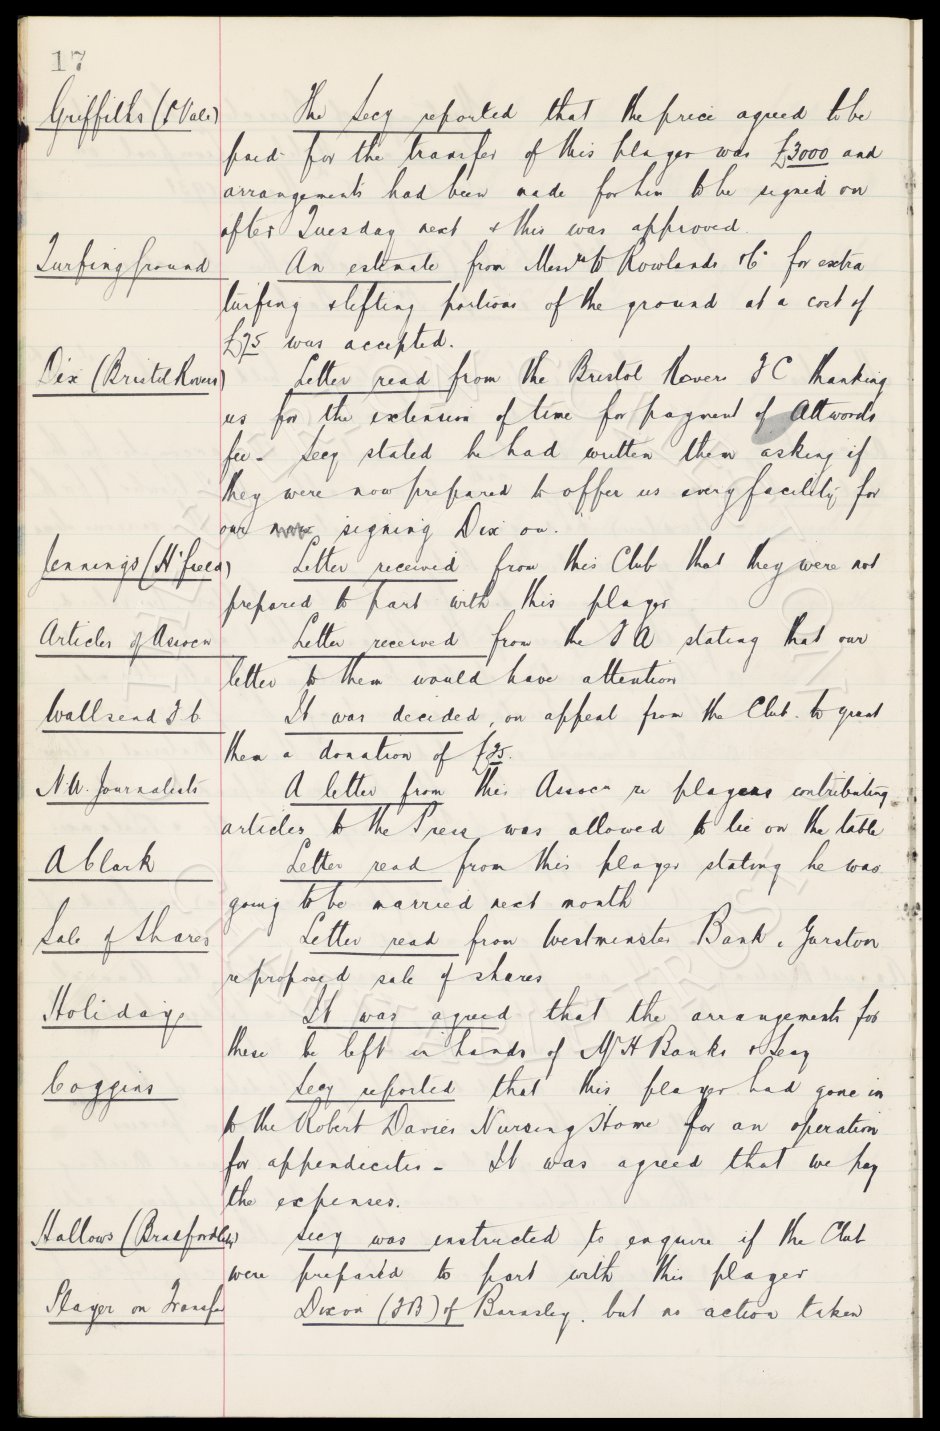 17
Griffiths (P Vale) The Secy reported that the price agreed to be
paid for the transfer of this player was £3000 and
arrangements had been made for him to be signed on
after Tuesday next & this was approved.
Turfing Ground An estimate from Messrs W Rowlands & Co for extra
turfing & lifting portions of the ground at a cost of
£75 was accepted.
Dix (Bristol Rovers) Letter read from the Bristol Rovers F C thanking
us for the extension of time for payment of Attwoods
fee - Secy stated he had written them asking if
they were now prepared to offer us every facility for
our now signing Dix on.
Jennings (H'field) Letter received from this Club that they were not
prepared to part with this player
Articles of Assocn Letter received from the F A stating that our
letter to them would have attention
Wallsend F C It was decided, on appeal from the Club to grant
them a donation of £25.
N.U. Journalists A letter from this Assocn re players contributing
articles to the Press was allowed to lie on the table
A Clark Letter read from this player stating he was
going to be married next month
Sale of Shares Letter read from Westminster Bank, Garston
re proposed sale of shares
Holidays It was agreed that the arrangements for
these be left in hands of Mr H Banks & Secy
Coggins Secy reported that this player had gone in
to the Robert Davies Nursing Home for an operation
for appendecites - It was agreed that we pay
the expenses.
Hallows (Bradford City) Secy was instructed to enquire if the Club
were prepared to part with this player
Player on Transfer Dixon (F B) of Barnsley. but no action taken